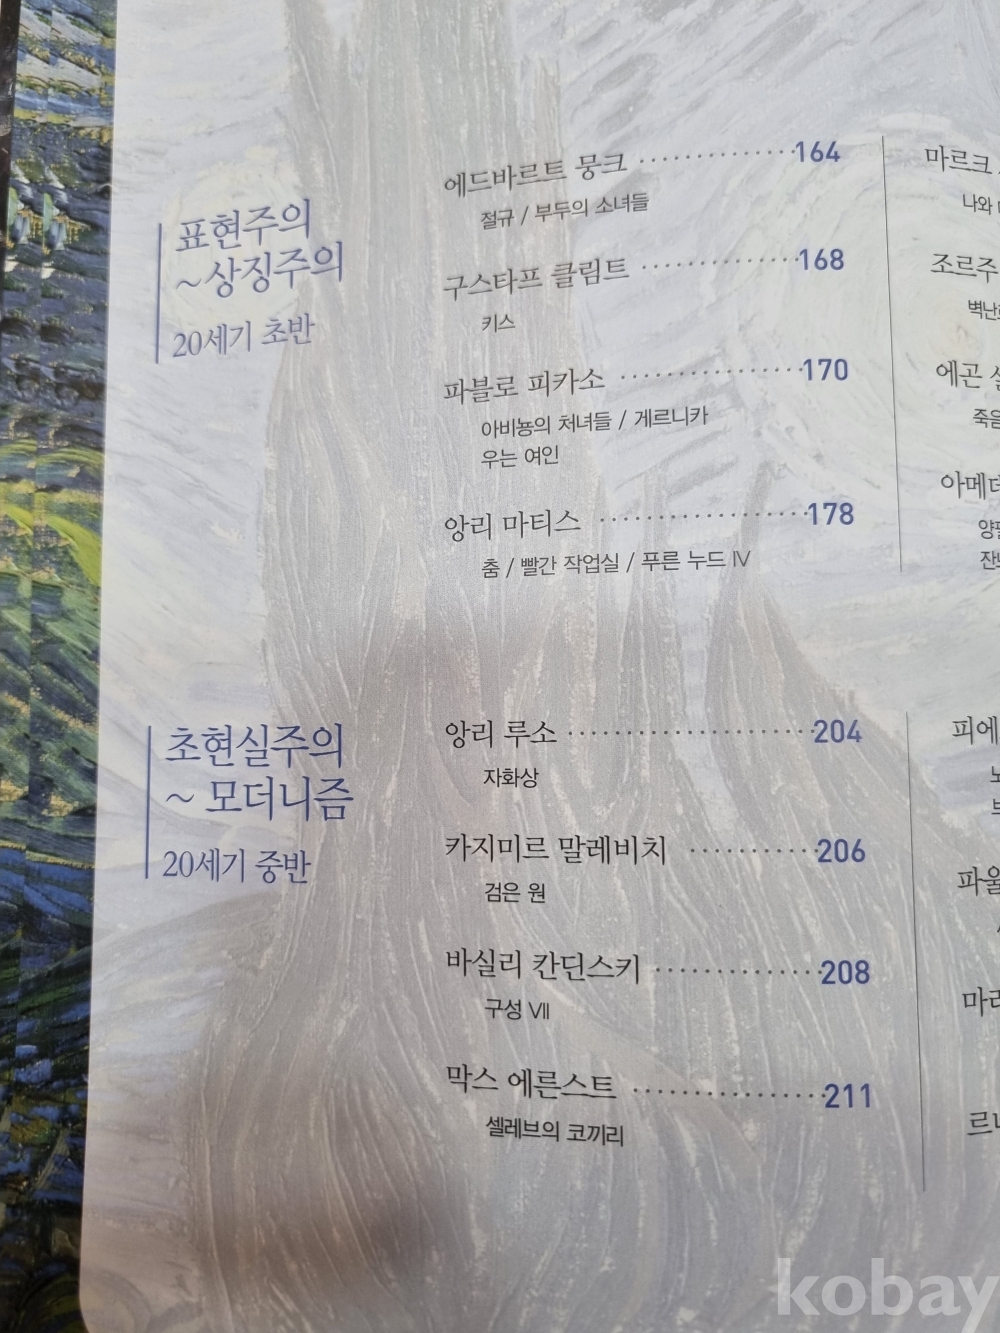 표현주의
~상징주의
20세기 초반
에드바르트 뭉크 164
절규 / 부두의 소녀들
구스타프 클림트 168
키스
파블로 피카소 170
아비뇽의 처녀들 / 게르니카
우는 여인
앙리 마티스 178
춤 / 빨간 작업실 / 푸른 누드 Ⅳ
마르크
나와
조르주
에곤
초현실주의
~ 모더니즘
20세기 중반
앙리 루소 204
자화상
카지미르 말레비치 206
검은 원
바실리 칸딘스키 208
구성 Ⅶ
막스 에른스트 211
셀레브의 코끼리
kobay